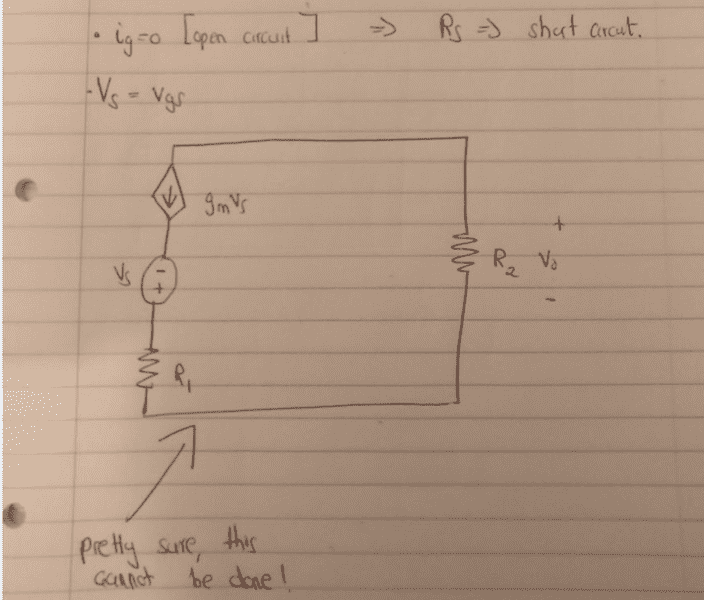 • ig=0 [open circuit] => Rs => short circuit.
- Vs = Vgs
gmVs
+
Vs
-
+
R2 Vo
-
R1
pretty sure, this
cannot be done!